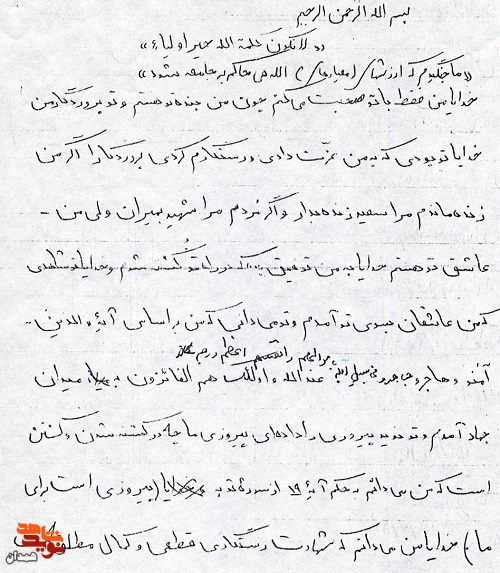 بسم الله الرحمن الرحیم
«لا تکون کلمة الله خیر اولیاء»
«ما جنگیدیم که ارزشهای (معیارهای) الله جل حاکم به جامعه بشود»
خدایا من فقط با تو صحبت می کنم چون من بنده تو هستم و تو پروردگار من
خدایا تو بودی که به من عزّت دادی و رستگارم کردی پروردگارا اگر من
زنده ماندم مرا سعید زنده بدار و اگر مُردم مرا شهید بمیران ولی من -
عاشق تو هستم خدایا به من توفیق که در راه تو کُشته شوم و خدایا تو شاهدی
که من عاشقانه بسوی تو آمدم و تو می دانی که من بر اساس آیۀ والذین -
آمنو و هاجرو و جاهدو فی سبیل الله باموالهم و انفسهم اعظم درجه عند الله و اولئک هم الفائزون به میدان
جهاد آمدم و تو نوید پیروزی را داده ای پیروزی ما چه در کشته شدن و کشتن
است که من می دانم به حکم آیۀ ۱۹ از سورۀ توبه (پیروزی است برای
ما) خدایا من می دانم که شهادت رستگاری قطعی و کمال مطلق
نوید شاهد
همدان